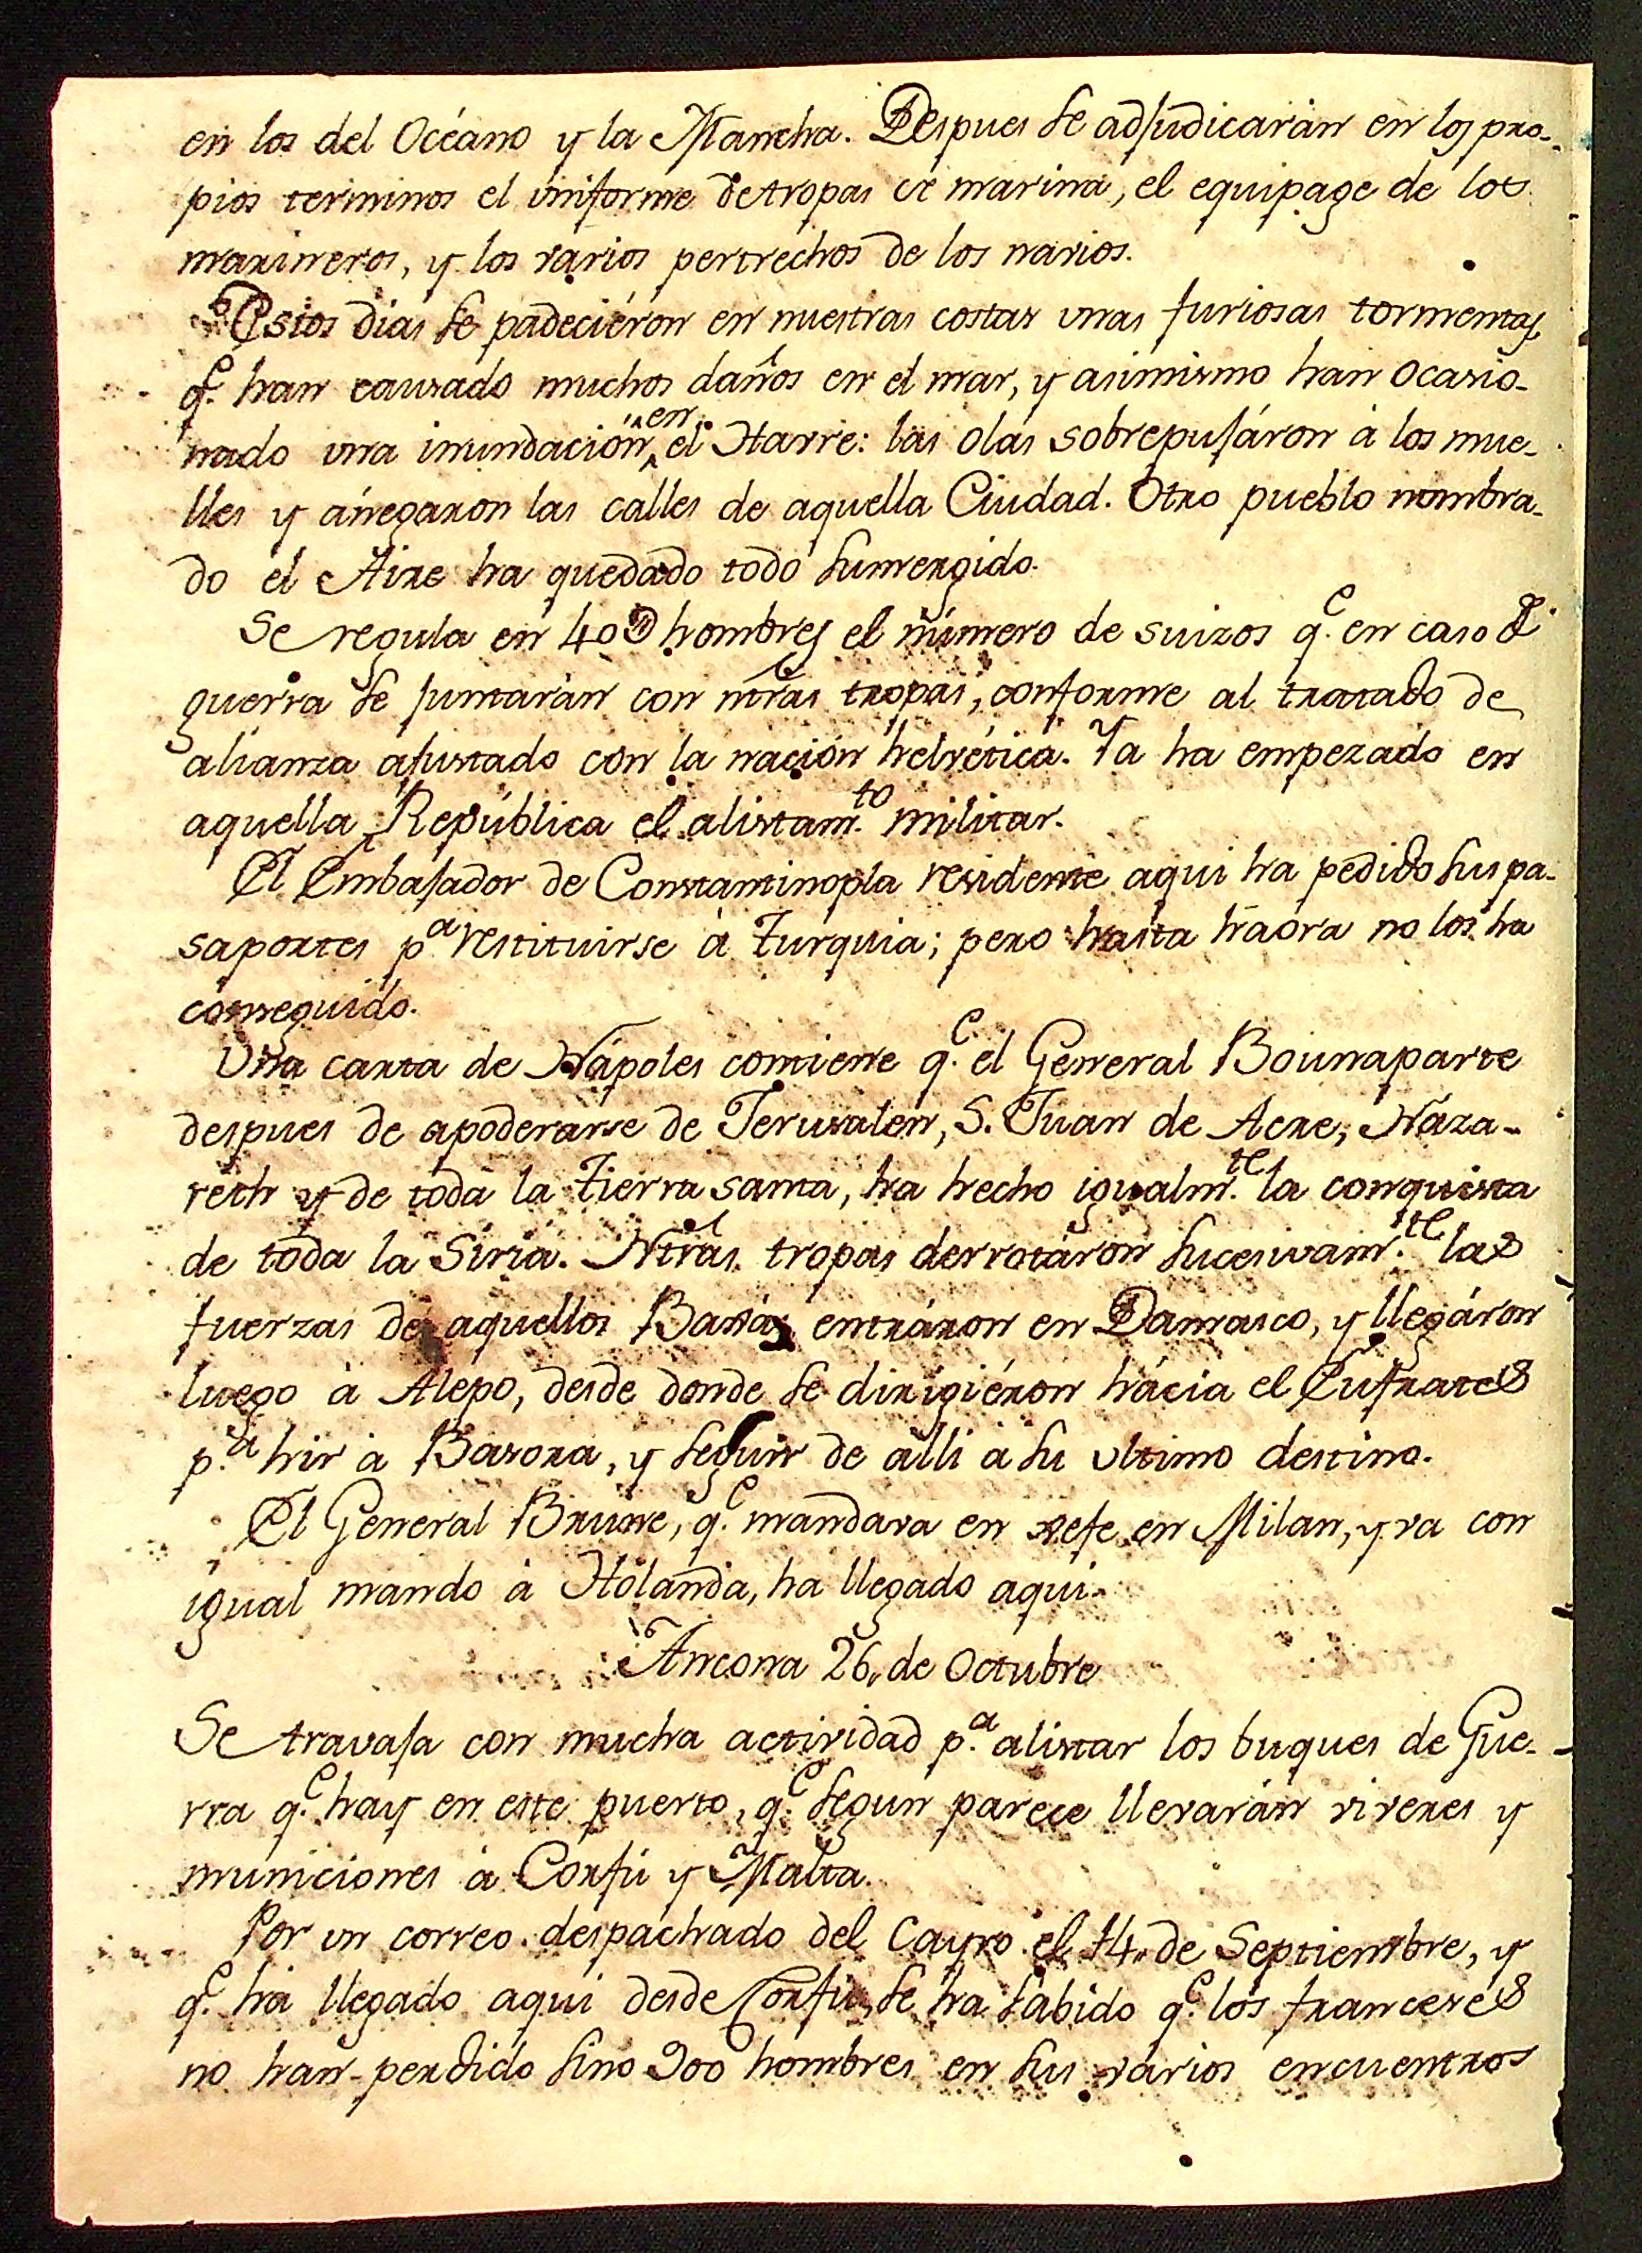 en los del Océano y la Mancha. Despues se adjudicarán en los pro-
pios terminos el uniforme de tropas de marina, el equipage de los
marineros, y los varios pertrechos de los navios.
Estos dias se padeciéron en nuestras costas unas furiosas tormentas,
q.e han causado muchos daños en el mar, y asimismo han ocasio-
nado una inundación en el Havre: las olas sobrepujáron à los mue-
lles y anegaron las calles de aquella Ciudad. Otro pueblo nombra-
do el Aire ha quedado todo sumergido.
Se regula en 40@ hombres el número de suizos q.e en caso de
guerra se juntarán con ntras tropas, conforme al tratado de
alianza ajustado con la nación helvética. Ya ha empezado en
aquella República el alistam.to militar.
El Embajador de Constantinopla residente aqui ha pedido sus pa-
saportes p.a restituirse à Turquia; pero hasta haora no los ha
conseguido.
Una carta de Nápoles contiene q.e el General Bounaparte
despues de apoderarse de Jerusalen, S. Juan de Acre, Naza-
reth y de toda la tierra santa, ha hecho igualm.te la conquista
de toda la Siria. Ntras. tropas derrotáron sucesivam.te las
fuerzas de aquellos Baxás, entráron en Damasco, y llegáron
luego à Alepo, desde donde se dirigiéron hácia el Eufrates
p.a hir à Basora, y seguir de alli a su ultimo destino.
El General Brune, q.e mandava en xefe en Milan, y va con
igual mando à Holanda, ha llegado aqui.
Ancona 26. de Octubre
Se travaja con mucha actividad p.a alistar los buques de Gue-
rra q.e hay en este puerto, q.e segun parece llevarán viveres y
municiones à Corfú y Malta.
Por un correo despachado del Cayro el 14. de Septiembre, y
q.e ha llegado aqui desde Corfú, se ha sabido q.e los franceses
no han perdido sino 900 hombres en sus varios encuentros